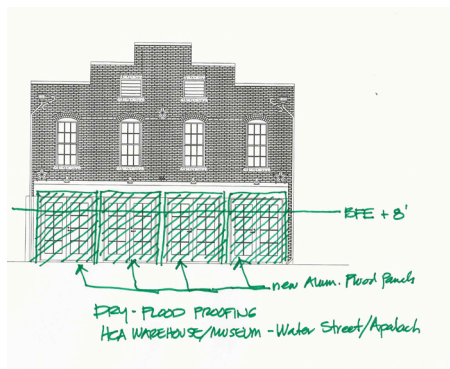 BFE + 8'
new Alum. Flood Panels
DRY - FLOOD PROOFING
HCA WAREHOUSE/MUSEUM - Water Street/Apalach